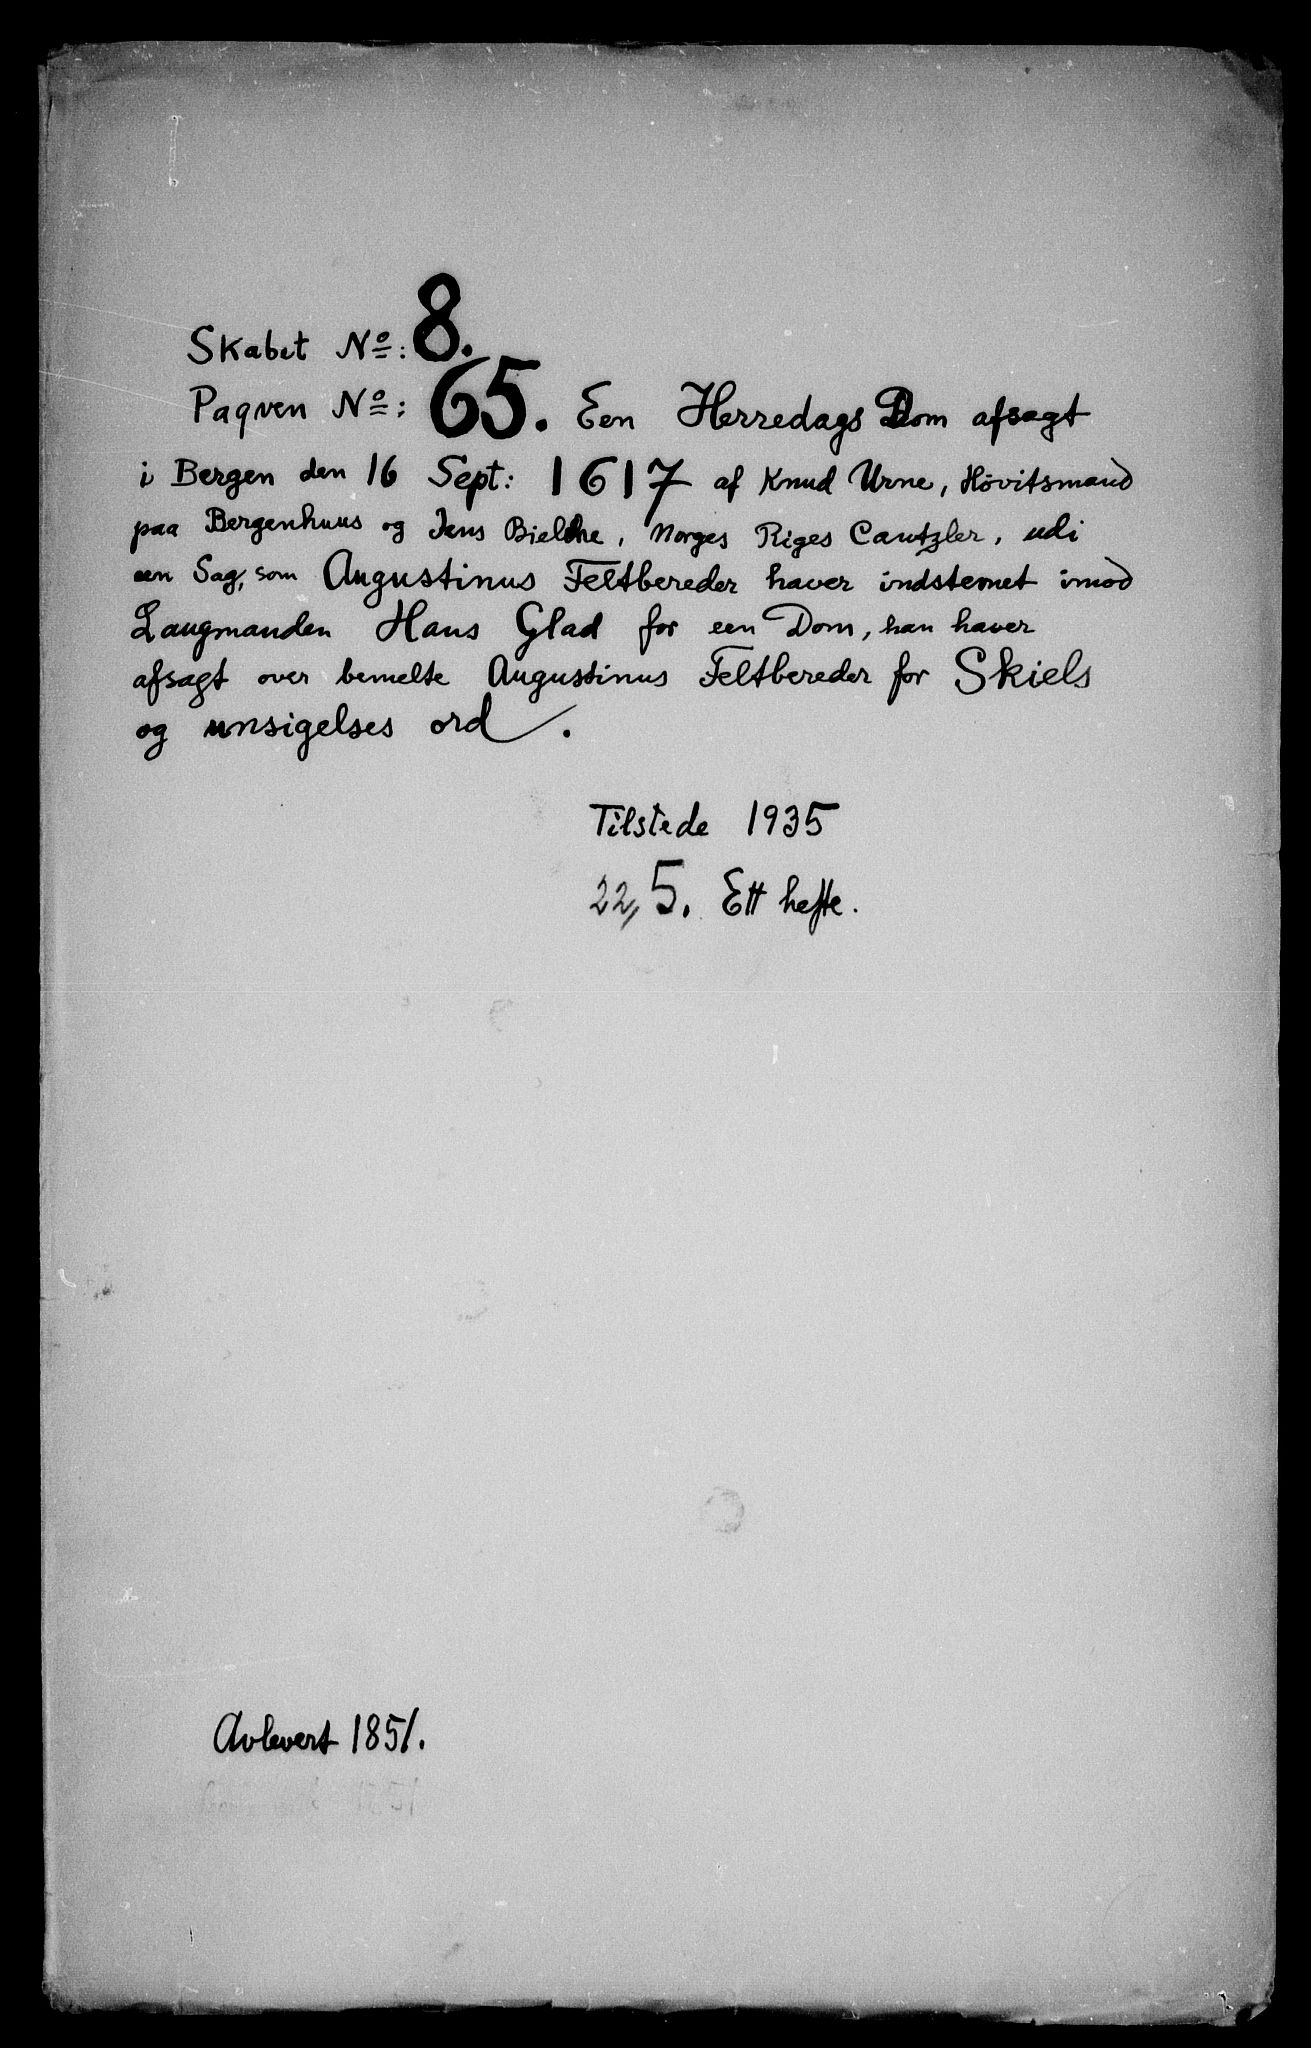 Skabet No: 8.
Paqven No: 65. Een Herredags Dom afsagt
i Bergen den 16 Sept: 1617 af Knud Urne, Hövitsmand
paa Bergenhuus og Jens Bielche, Norges Riges Cantzler, udi
een Sag, som Augustinus Feltbereder haver indstemet imod
Laugmanden Hans Glad for een Dom, han haver
afsagt over bemelte Augustinus Feltbereder for Skiels
og unsigelses ord.
Tilstede 1935
22,5. Ett hefte.
Avlevert 1851.